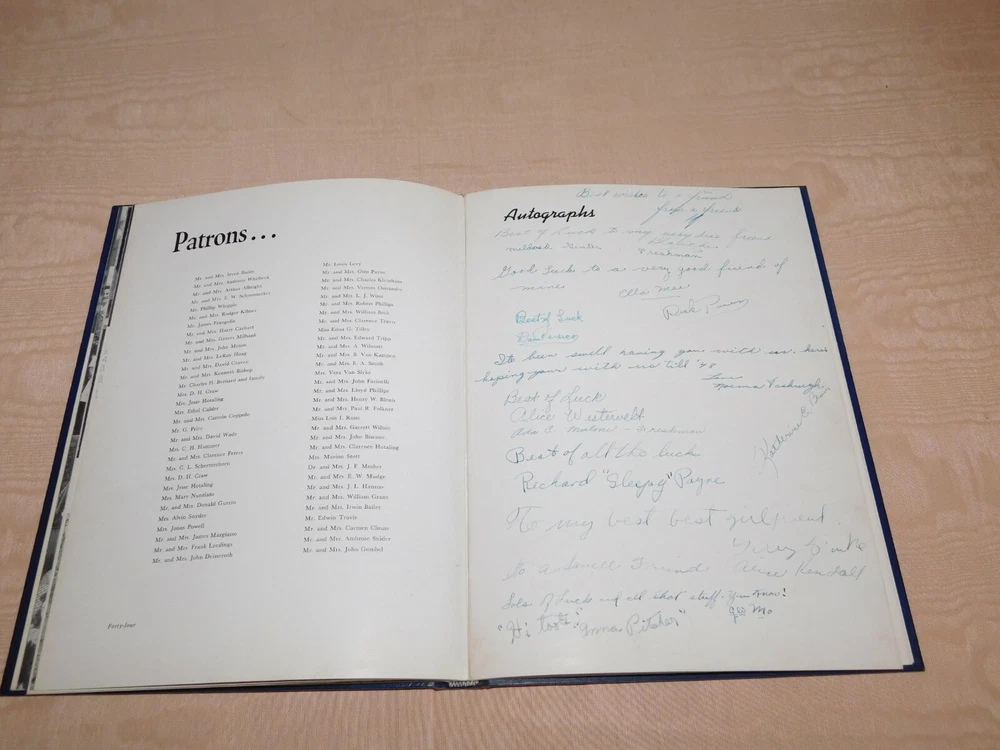 Patrons...
Mr. and Mrs. Irwin Bailey
Mr. and Mrs. Anthony
Mr. and Mrs. Arthur Albright
Mr. and Mrs. E. W. Schoonmaker
Mr. Phillip Whipple
Mr. and Mrs. Rodger Kilmer
Mr. James
Mr. and Mrs. Harry Carhart
Mr. and Mrs. Garett Milbank
Mr. and Mrs. John Moran
Mr. and Mrs. LeRoy Haag
Mr. and Mrs. David Craver
Mr. and Mrs. Kenneth Bishop
Mr. Charles H. Bernard and family
Mrs. D. H. Crase
Mrs. Jesse Hotaling
Mrs. Ethel Calder
Mr. and Mrs. Carmin Coppolo
Mr. G. Price
Mr. and Mrs. David Wade
Mrs. C. H. Hammer
Mr. and Mrs. Clarence Peters
Mrs. G. L. Schermerhorn
Mrs. D. H. Crase
Mrs. Jesse Hotaling
Mrs. Mary Nunziato
Mr. and Mrs. Donald
Mrs. Alvin Snyder
Mrs. Jonas Powell
Mr. and Mrs. James Margiasso
Mr. and Mrs. Frank Lendings
Mr. and Mrs. John Deinzereth
Mr. Louis Levy
Mr. and Mrs. Otto Payne
Mr. and Mrs. Charles
Mr. and Mrs. Vernon
Mr. and Mrs. L. J. Wine
Mr. and Mrs. Robert Phillips
Mr. and Mrs. William Beck
Mr. and Mrs. Clarence Travis
Miss Edna G. Tilley
Mr. and Mrs. Edward Tripp
Mr. and Mrs. A. Wilmott
Mr. and Mrs. B. Van Kampen
Mr. and Mrs. E. A. Smith
Mrs. Vera Van Slyke
Mr. and Mrs. John Pacinelli
Mr. and Mrs. Lloyd Phillips
Mr. and Mrs. Henry W. Blenis
Mr. and Mrs. Paul R. Folkner
Miss Lois I. Rowe
Mr. and Mrs. Garrett Wiltsie
Mr. and Mrs. John Biscone
Mr. and Mrs. Clarence Hotaling
Mrs. Marion Stott
Dr. and Mrs. J. F. Mosher
Mr. and Mrs. E. W. Mudge
Mr. and Mrs. J. L. Hannay
Mr. and Mrs. William Grant
Mr. and Mrs. Irwin Bailey
Mr. Edwin Travis
Mr. and Mrs. Carmen
Mr. and Mrs. Ambrose Snider
Mr. and Mrs. John Goschel
Forty-four
Autographs
Best wishes to a friend
from a friend
Best of Luck to my very
Freshman
Good luck to a very good friend of
mine
Ella Mae
Dick
Best of Luck
It's been swell having you with us, here's
hoping your with us till '48
Love
Norma Vosburgh
Katherine E.
Best of Luck
Alice Westervelt
Freshman
Best of all the luck
Richard "Sleepy" Payne
To my best best girlfriend
To a Swell Friend
Alice Kendall
Lots of Luck and all that stuff. You know!
Mo
"Hi toots" "Anna Pitcher"